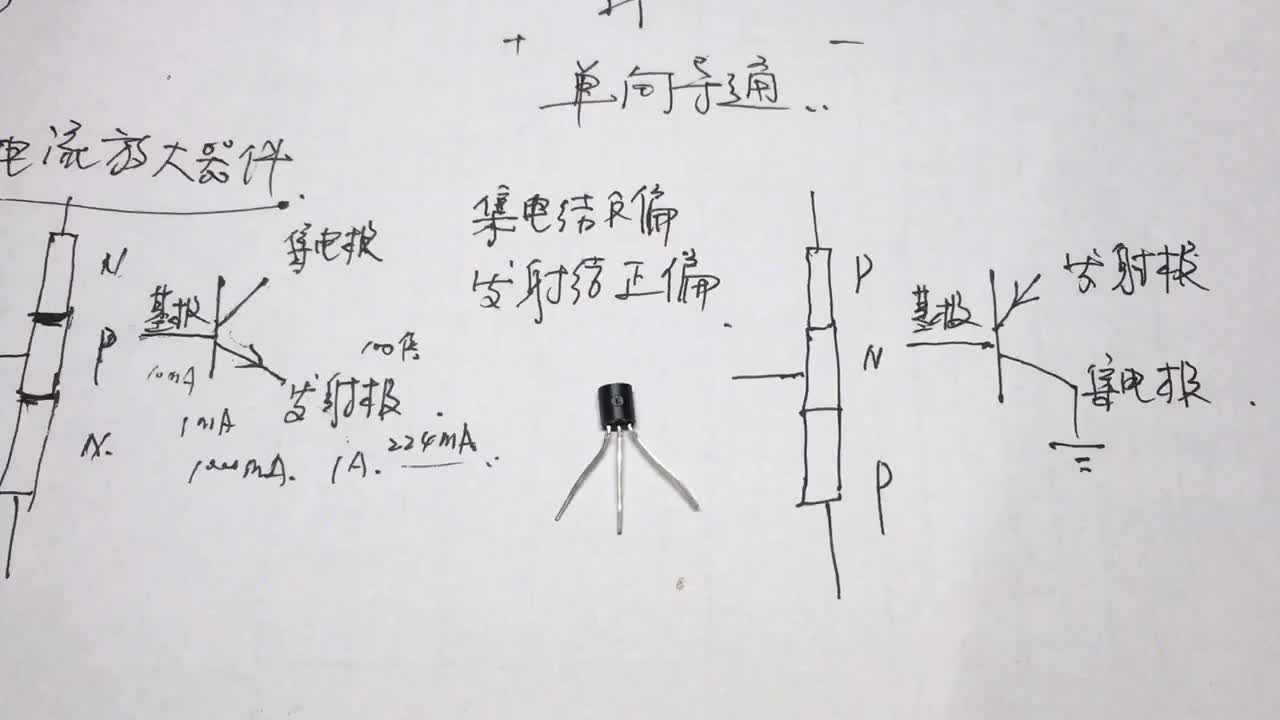 + －
单向导通
电流放大器件
集电结反偏
发射结正偏
N
P
N
集电极
基极
100倍
10mA
发射极
1mA
1000mA. 1A. 224mA
P
N
P
基极
发射极
集电极